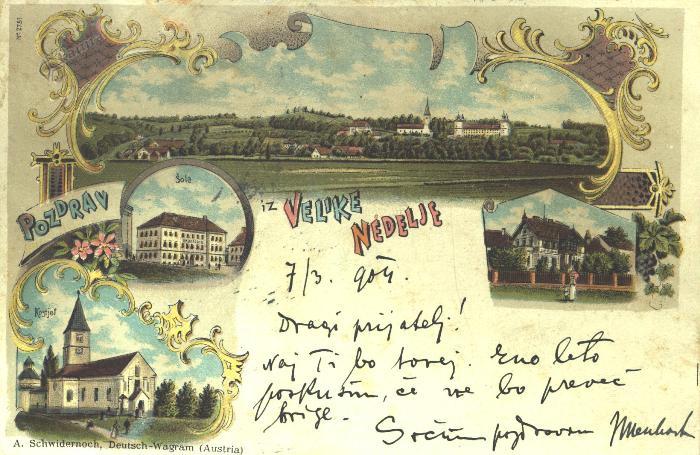 No 2751
Šola
POZDRAV iz VELIKE
NEDELJE
7/3. 904.
Dragi prijatelj!
Naj Ti bo torej. Eno leto
poskusim, če ne bo preveč
brige.
Srčen pozdrav
A. Schwidernoch, Deutsch-Wagram (Austria)